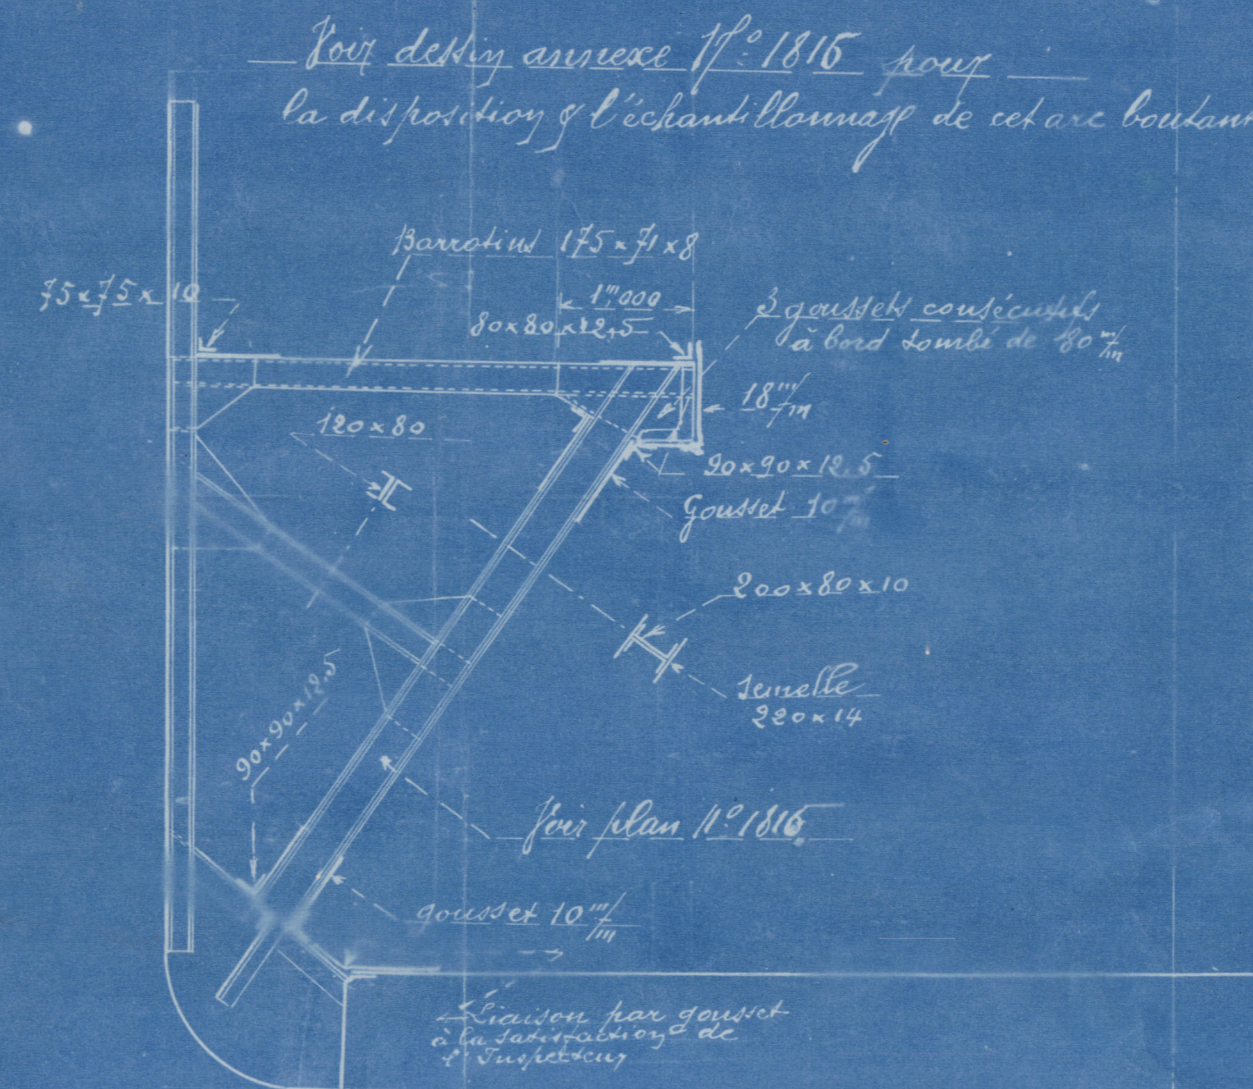 Voir dessin annexe N° 1816 pour
la disposition & l'échantillonnage de cet arc boutant
Barrotins 175×71×8
75×75×10
1m000
80×80×12,5
3 goussets consécutifs
à bord tombé de 80 m/m
18 m/m
120×80
90×90×12,5
Gousset 10 m/m
200×80×10
Semelle
220×14
90×90×12,5
Voir plan N° 1816
gousset 10 m/m
Liaison par gousset
à la satisfaction de
l'Inspecteur